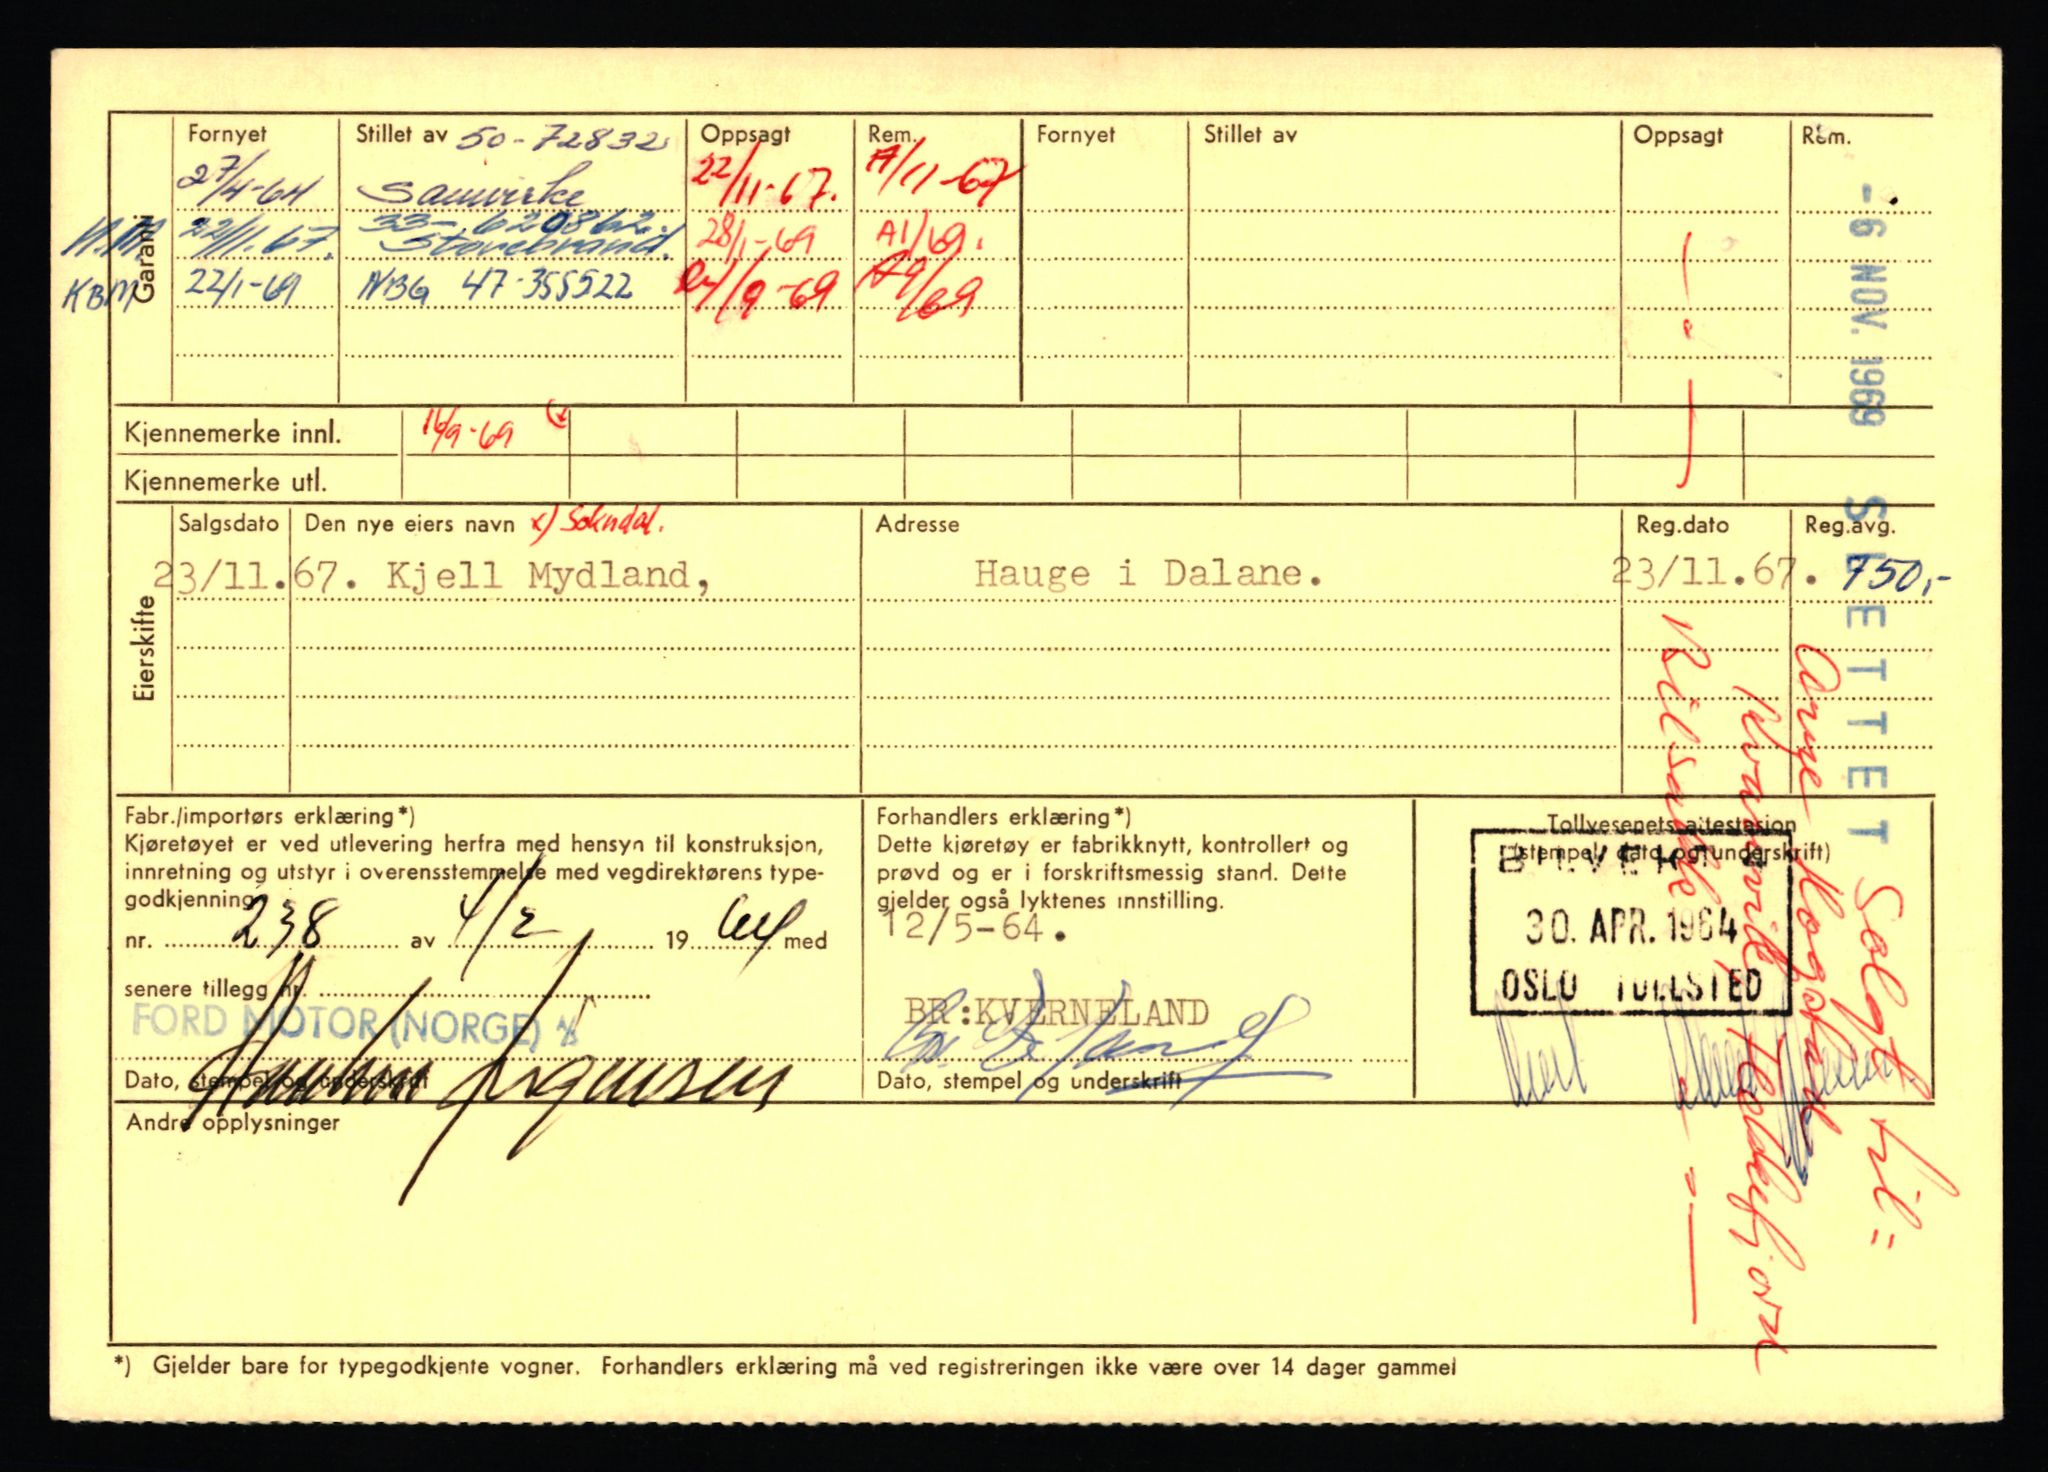 Garanti
Fornyet Stillet av 50-72832 Oppsagt Rem. Fornyet Stillet av Oppsagt Rem.
27/4-64 Samvirke 22/11-67. A/11-67
22/11.67. 33-620862. Storebrand. 28/1-69 A1/69.
KBM 22/1-69 NBG 47-355522 /9-69 A9/69
Kjennemerke innl. 16/9-69
Kjennemerke utl.
Eierskifte
Salgsdato Den nye eiers navn x) Sokndal. Adresse Reg.dato Reg.avg.
23/11.67. Kjell Mydland, Hauge i Dalane. 23/11.67. 750,-
Fabr./importørs erklæring*)
Kjøretøyet er ved utlevering herfra med hensyn til konstruksjon,
innretning og utstyr i overensstemmelse med vegdirektørens type-
godkjenning
nr. 238 av 4/2 1964 med
senere tillegg nr.
FORD MOTOR (NORGE) A/S
Dato, stempel og underskrift
Forhandlers erklæring*)
Dette kjøretøy er fabrikknytt, kontrollert og
prøvd og er i forskriftsmessig stand. Dette
gjelder også lyktenes innstilling.
12/5-64.
BR:KVERNELAND
Dato, stempel og underskrift
Tollvesenets attestasjon
(stempel, dato og underskrift)
30. APR. 1964
OSLO TOLLSTED
Andre opplysninger
*) Gjelder bare for typegodkjente vogner. Forhandlers erklæring må ved registreringen ikke være over 14 dager gammel
- 6 NOV. 1969 SLETTET
Solgt til: